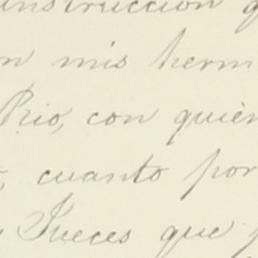 instruccion q
n mis herm
Rio, con quién
, cuanto por
Jueces que p